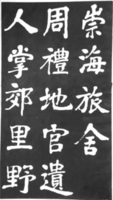 崇海旅舍
周禮地官遺
人掌郊里野